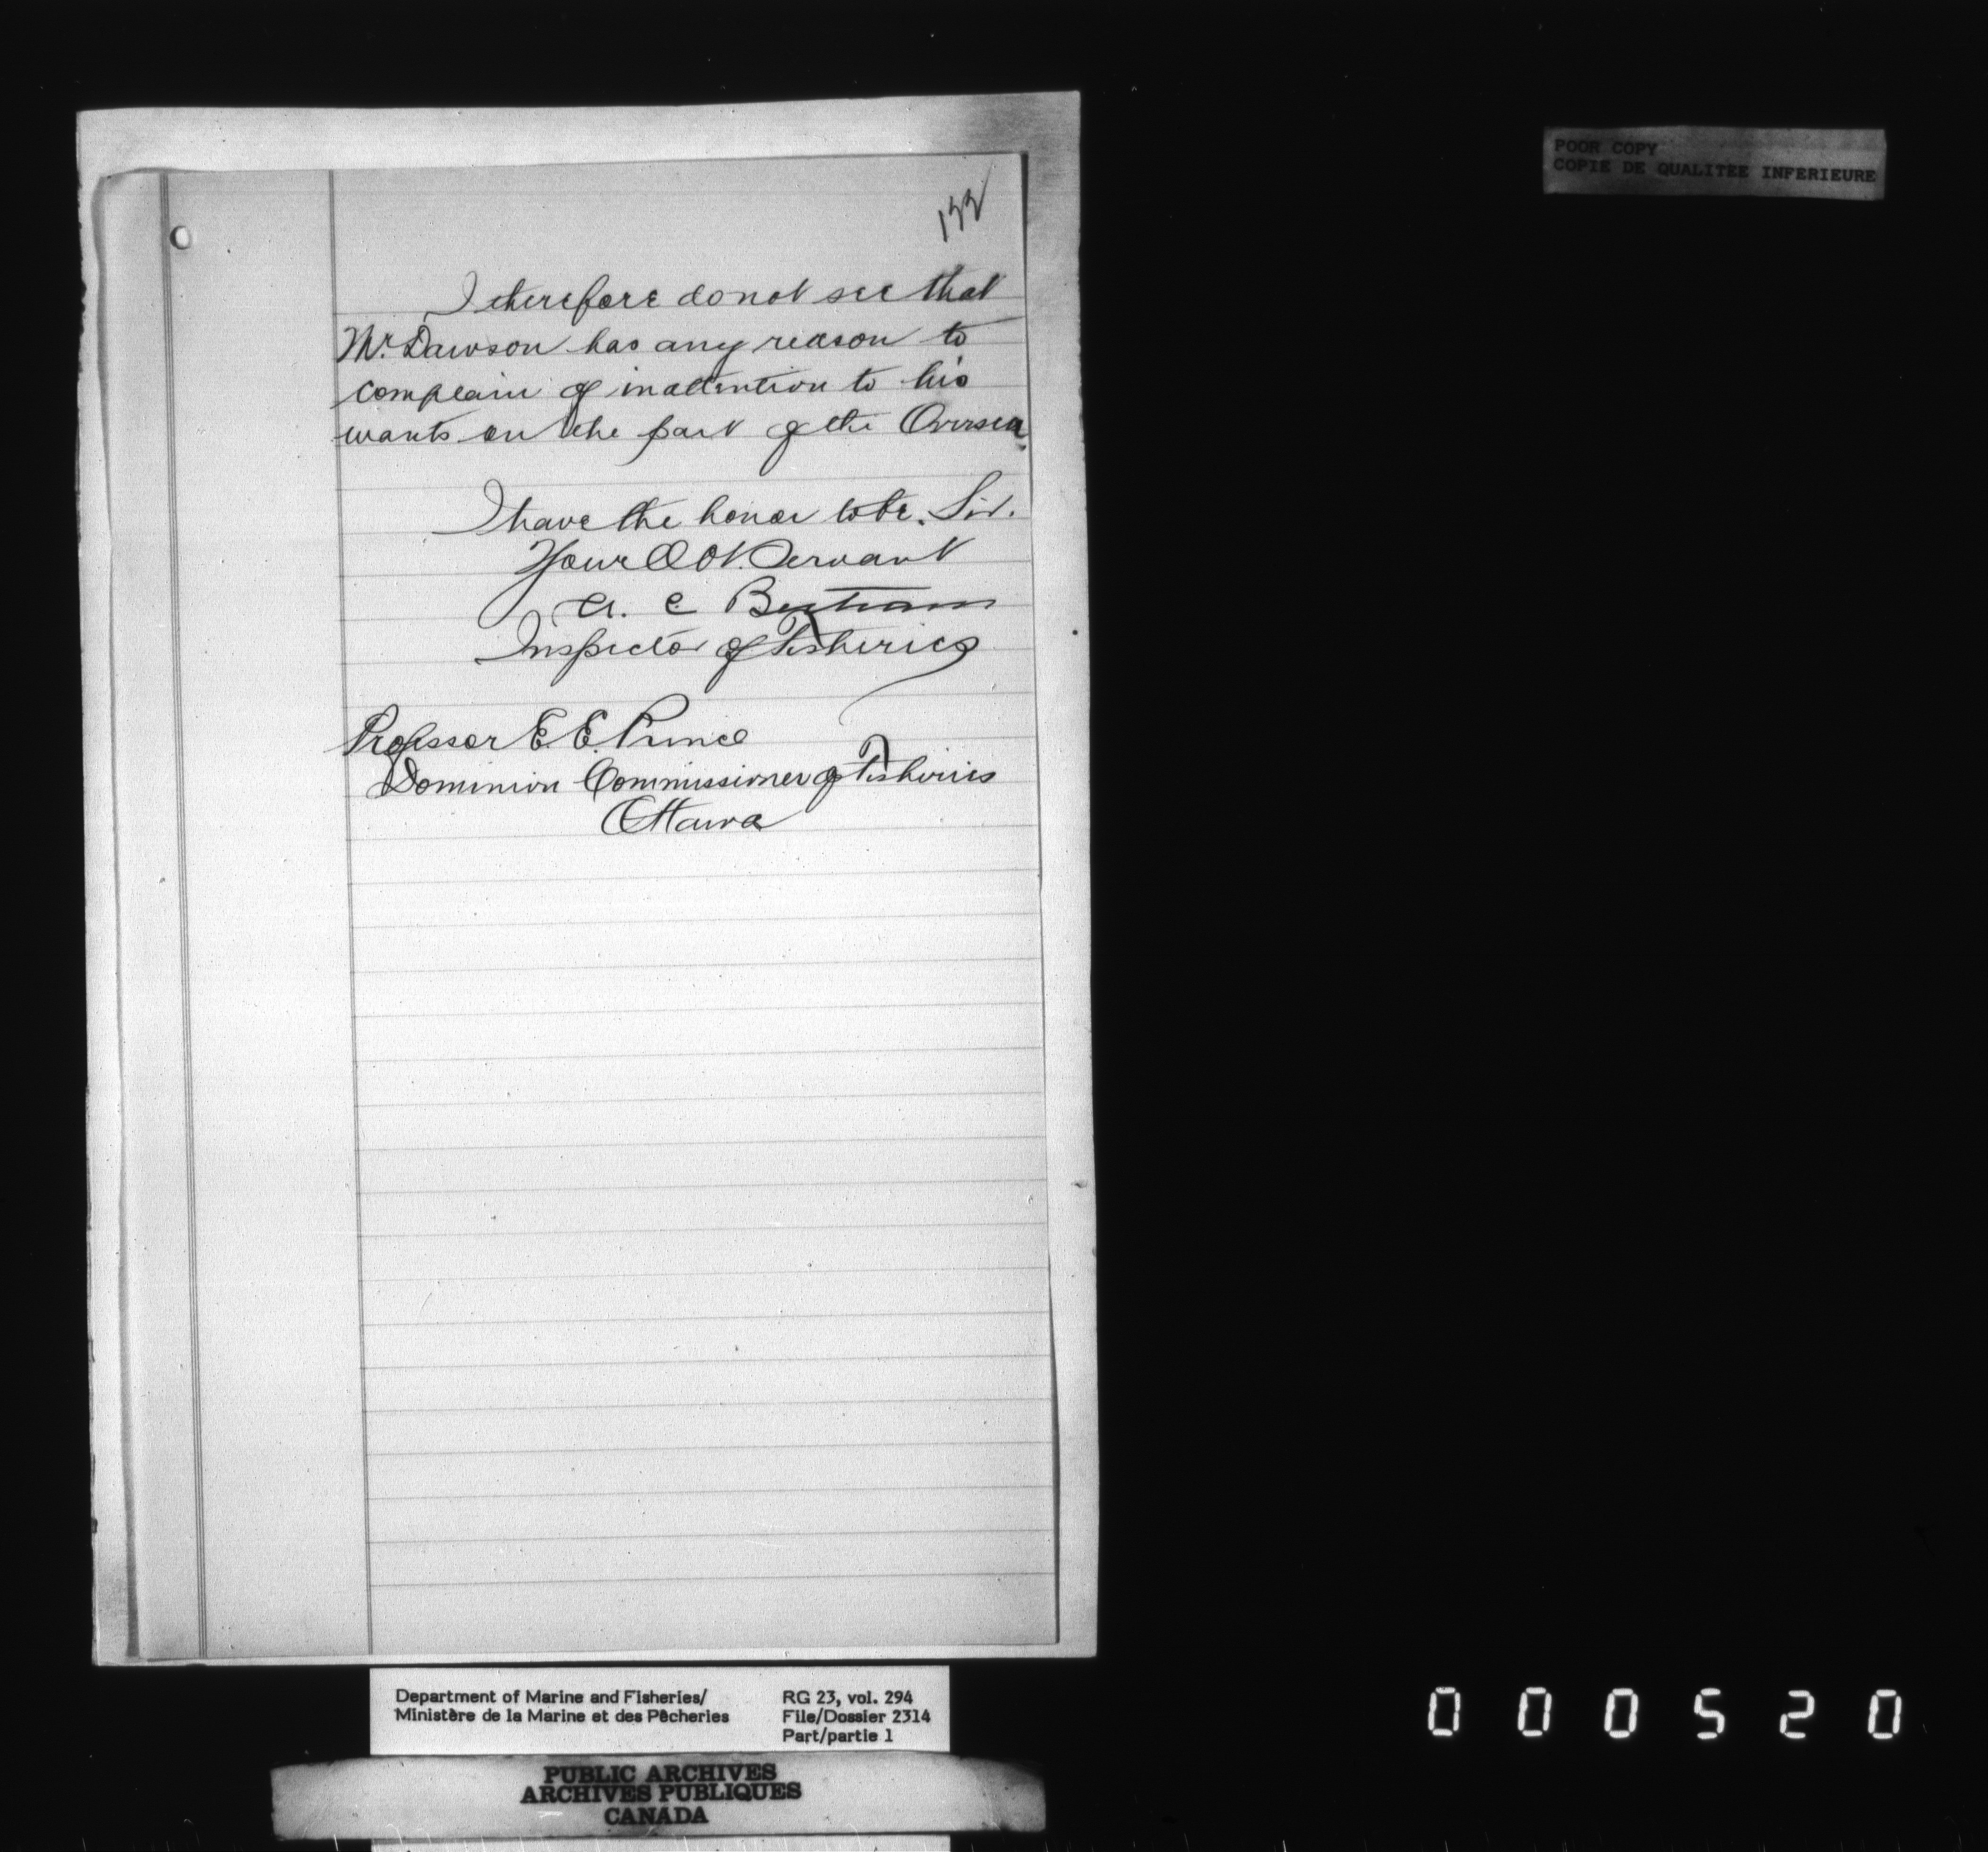 POOR COPY
COPIE DE QUALITEE INFERIEURE
133
I therefore do not see that
Mr. Dawson has any reason to
complain of inattention to his
wants on the part of the Overseer.
I have the honor to be, Sir.
Your Obt. Servant
A. C Bertram
Inspector of Fisheries
Professor E. E. Prince
Dominion Commissioner of Fisheries
Ottawa
Department of Marine and Fisheries/
Ministère de la Marine et des Pêcheries
RG 23, vol. 294
File/Dossier 2314
Part/partie 1
PUBLIC ARCHIVES
ARCHIVES PUBLIQUES
CANADA
000520